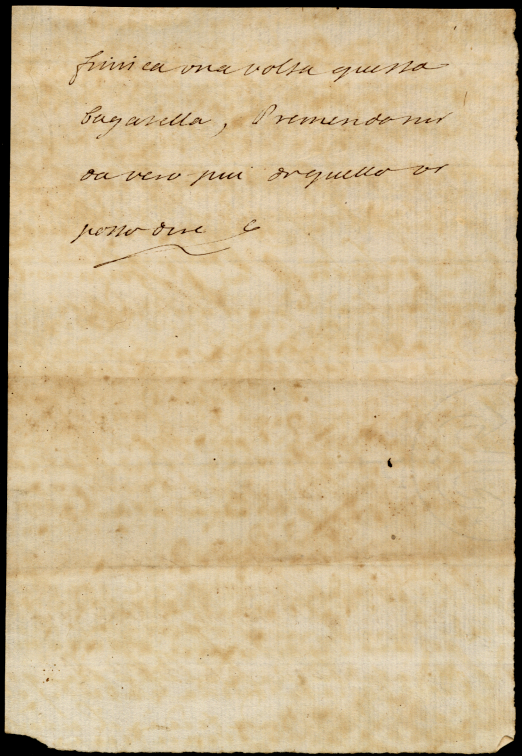 finirla una volta questa
bagatella, Premendomi
da vero piu di quello vi
posso dire